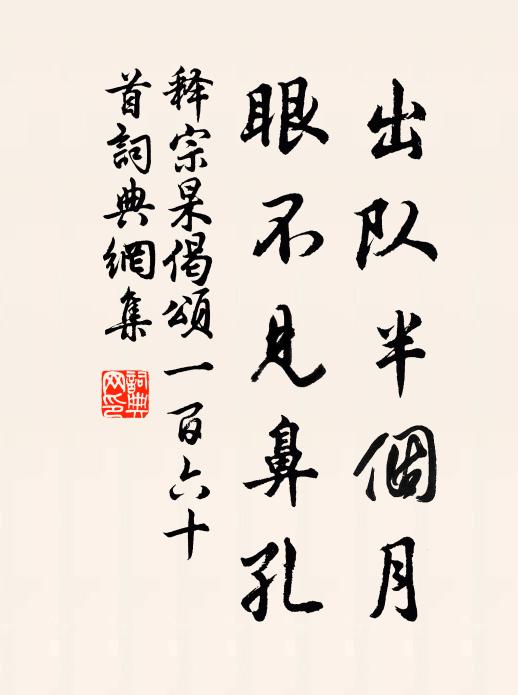 出队半個月
眼不见鼻孔
释宗杲偈頌一百六十
首詞典網集
詞典
网印